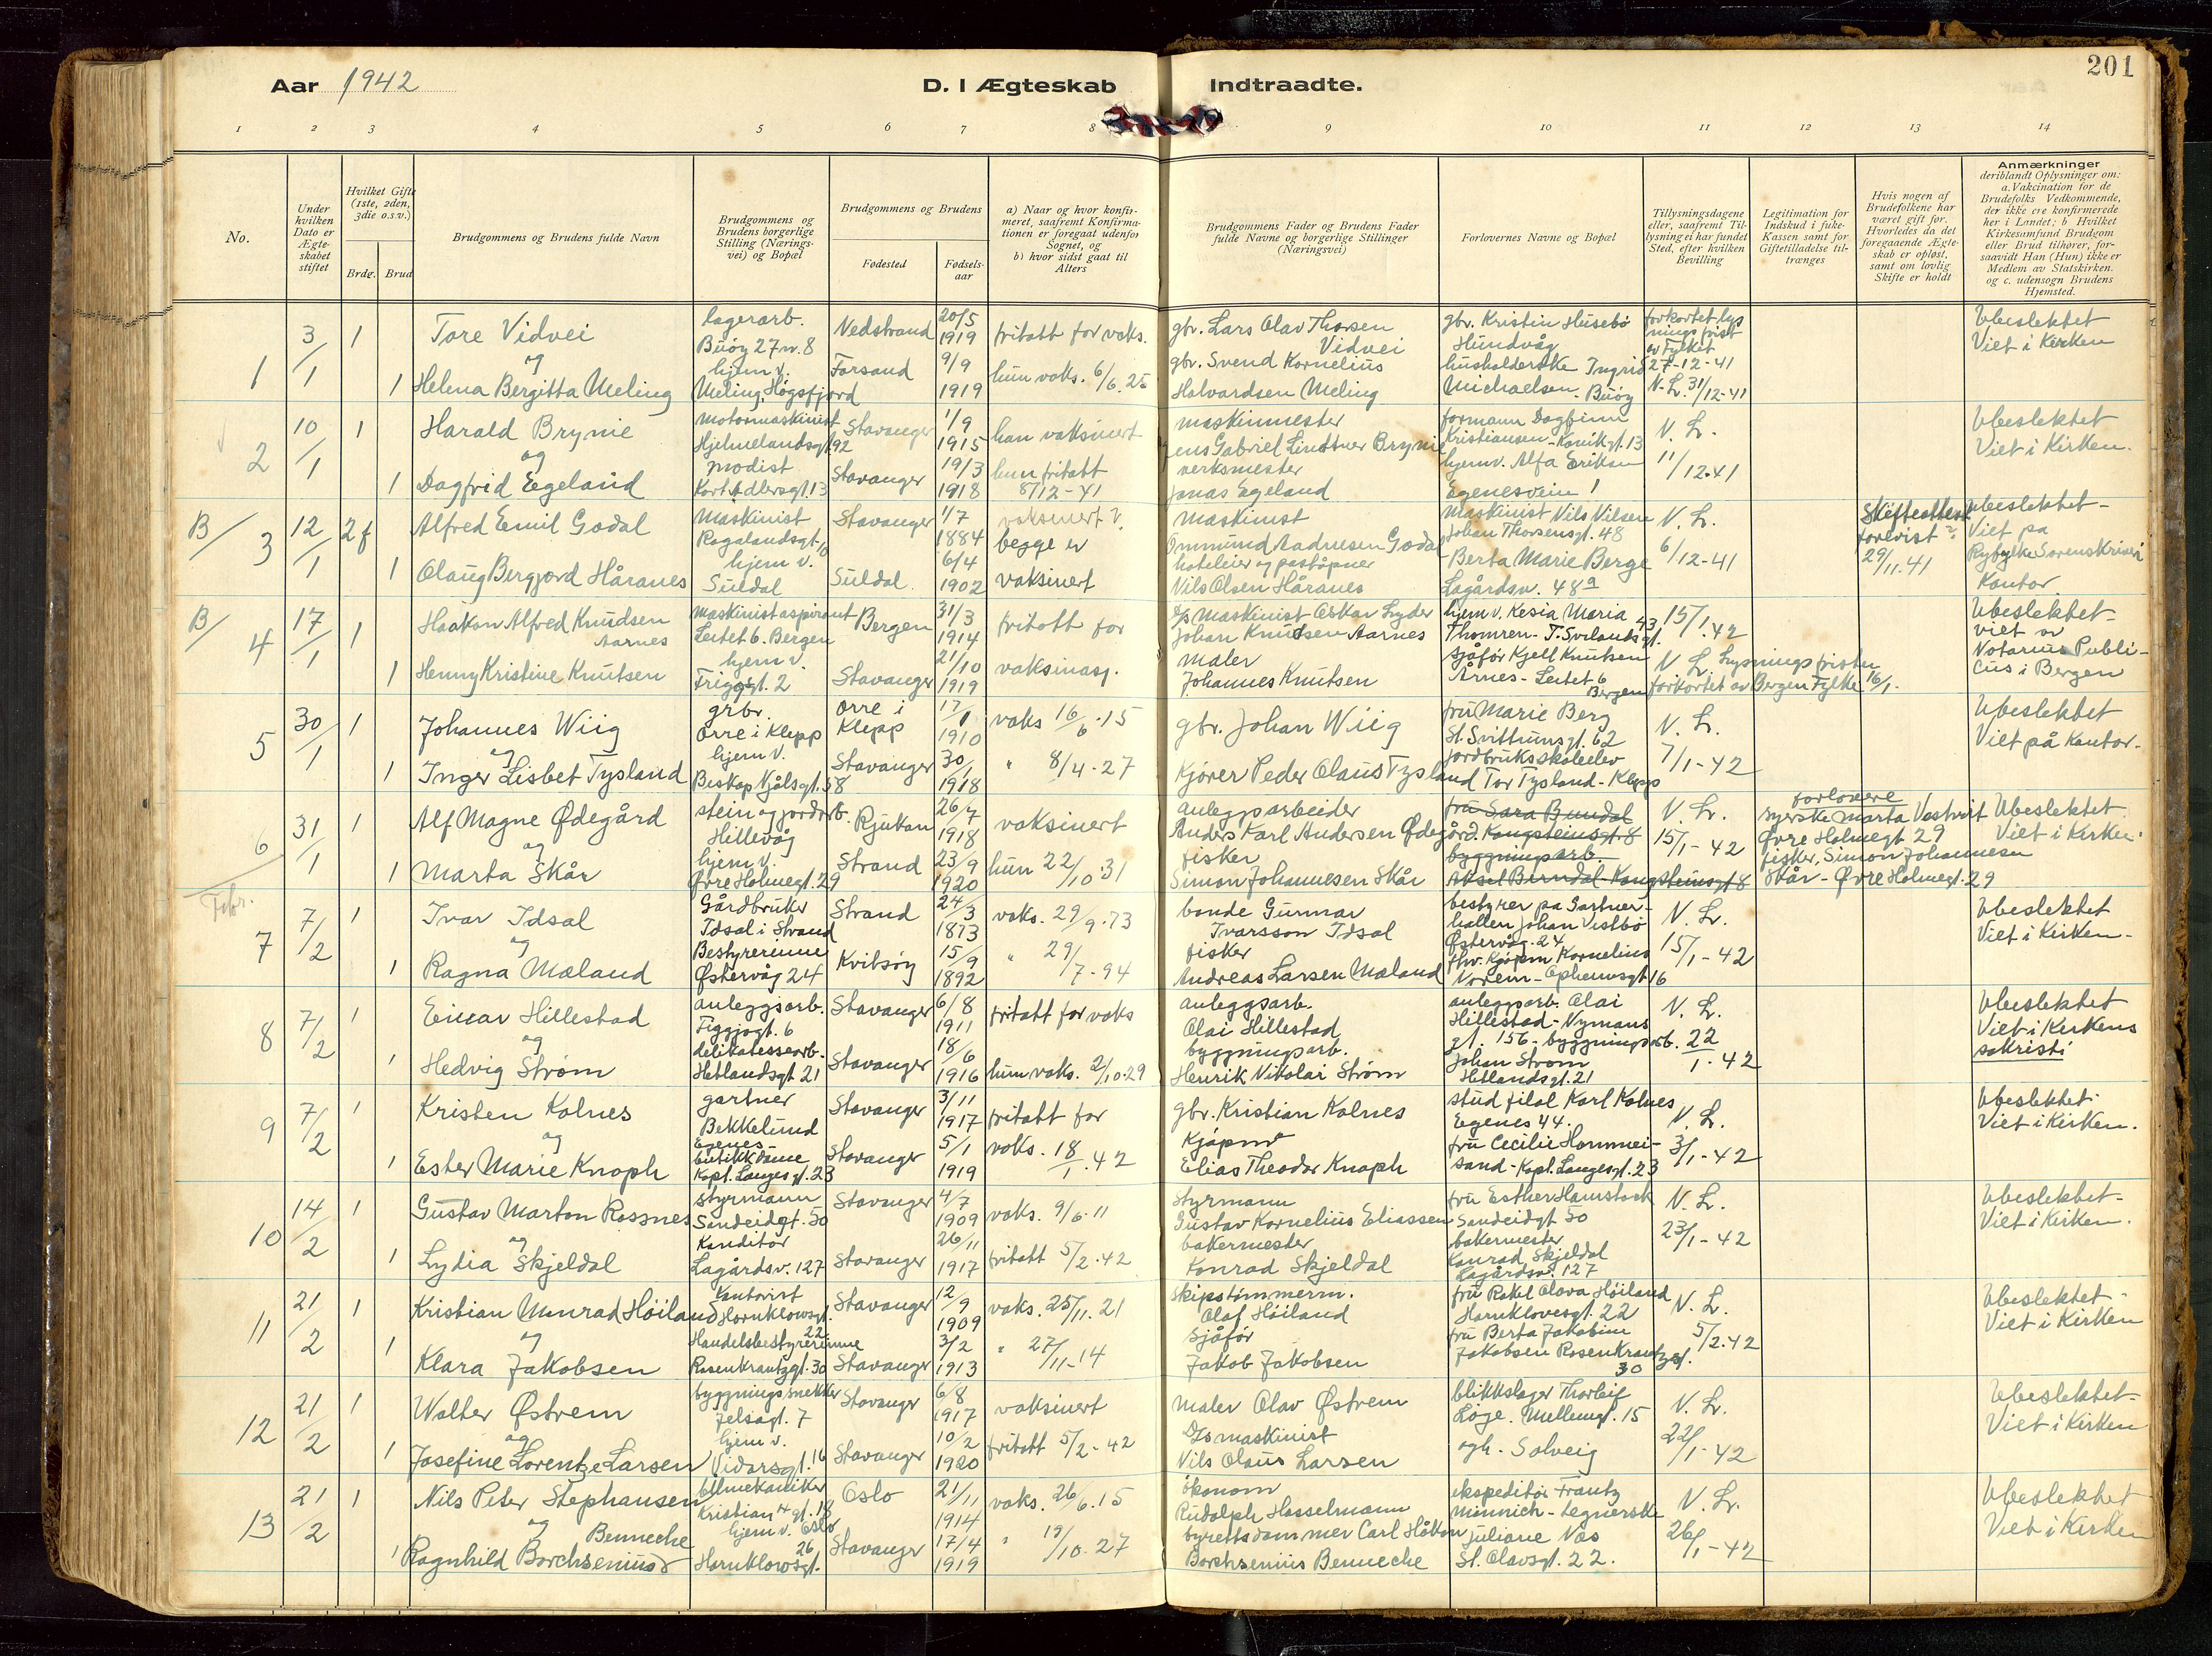 Aar 1942
D. I Ægteskab Indtraadte.
201
1 2 3 4 5 6 7 8 9 10 11 12 13 14
No.
Under hvilken Dato er Ægteskabet stiftet
Hvilket Gifte (1ste, 2den, 3die o.s.v.)
Brdg. Brud
Brudgommens og Brudens fulde Navn
Brudgommens og Brudens borgerlige Stilling (Næringsvei) og Bopæl
Brudgommens og Brudens
Fødested
Fødselsaar
a) Naar og hvor konfirmeret, saafremt Konfirmationen er foregaat udenfor Sognet, og
b) hvor sidst gaat til Alters
Brudgommens Fader og Brudens Fader fulde Navne og borgerlige Stillinger (Næringsvei)
Forlovernes Navne og Bopæl
Tillysningsdagene eller, saafremt Tillysning ei har fundet Sted, efter hvilken Bevilling
Legitimation for Indskud i Enke-Kassen samt for Giftetilladelse tiltrænges
Hvis nogen af Brudefolkene har været gift før. Hvorledes da det foregaaende Ægteskab er opløst, samt om lovlig Skifte er holdt
Anmærkninger
deriblandt Oplysninger om: a. Vakcination for de Brudefolks Vedkommende, der ikke ere konfirmerede her i Landet; b Hvilket Kirkesamfund Brudgom eller Brud tilhører, forsaavidt Han (Hun) ikke er Medlem av Statskirken. og c. udensogn Brudens Hjemsted.
1 3/1 1 Tore Vidvei lagerarb. Buøy 27 n. 8 Nedstrand 20/5 1919 fritatt for vaks. gbr. Lars Olav Thorsen Vidvei gbr. Kristin Husebø Hundvåg forkortet lysningsfrist av Fylket 27-12-41 Ubeslektet Viet i Kirken
og
1 Helena Bergitta Meling hjem v. Meling, Høgsfjord Forsand 9/9 1919 hun vaks. 6/6. 25 gbr. Svend Kornelius Halvardsen Meling husholderske Ingrid Michaelsen Buøy N. L. 31/12-41
2 10/1 1 Harald Brynie Motormaskinist Hjelmelandsgt. 92 Stavanger 1/9 1915 han vaksinert maskinmester Jens Gabriel Lindtner Brynie formann Dagfinn Kristiansen - Kanikgt. 13 N. L. 11/12-41 Ubeslektet Viet i Kirken.
og
1 Dagfrid Egeland modist Kort Adlersgt. 13 Stavanger 19/3 1918 hun fritatt 8/12-41 verksmester Jonas Egeland hjemv. Alfa Eriksen Egenesvein 1
B/ 3 12/1 2 f Alfred Emil Godal Maskinist Rogalandsgt. 10 Stavanger 1/7 1884 vaksinert v. maskinist Ommund Aadnesen Godal Maskinist Nils Nilsen Johan Thorsensgt. 48 N. L. 6/12-41 Skifteattest forevist 29/11. 41 Ubeslektet - Viet på Ryfylke Sorenskriveri Kontor
1 Olaug Bergjord Håranes hjem v. Suldal Suldal 6/4 1902 begge er vaksinert hoteleier og poståpner Nils Olsen Håranes Berta Marie Berge Lagårdsv. 48a
B/ 4 17/1 1 Haakon Alfred Knudsen Aarnes Maskinistaspirant Leitet 6. Bergen Bergen 31/3 1914 fritatt for D/s Maskinist Oskar Lyder Johan Knudsen Aarnes hjem v. Kesia Maria Thomren - T. Svilandsgt. 43 15/1. 42 Ubeslektet - viet av Notarius Publicus i Bergen
1 Henny Kristine Knutsen hjem v. Triggt. 2 Stavanger 21/10 1919 vaksinasj. maler Johannes Knutsen sjåfør Kjell Knutsen Årnes - Leitet 6 Bergen N. L. Lysningsfristen forkortet av Bergen Fylke 16/1.
5 30/1 1 Johannes Wiig grbr. Orre i Klepp Orre i Klepp 17/1 1910 vaks 16/6. 15 gbr. Johan Wiig fru Marie Berg St. Svithunsgt. 62 N. L. 7/1-42 Ubeslektet Viet på Kontor.
og
1 Inger Lisbet Tysland hjem v. Beskop Njålsgt. 58 Stavanger 30/1 1918 " 8/4. 27 Kjører Peder Olaus Tysland jordbruksskoleelev Tor Tysland - Klepp
6 31/1 1 Alf Magne Ødegård stein og jordarb. Hillevåg Rjukan 26/7 1918 vaksinert anleggsarbeider Anders Karl Andersen Ødegård. fru Sara Bundal Kongsteinsgt. 8 N. L. 15/1-42 forlovere syerske Marta Vastveit Øvre Holmegt 29 Ubeslektet Viet i Kirken.
og
1 Marta Skår hjem v. Øvre Holmegt. 29 Strand 23/9 1920 hun 22/10. 31 fisker Simon Johannesen Skår byggningsarb. Aksel Berndal Kongsteinsgt 8 fisker, Simon Johannesen Skår - Øvre Holmegt. 29
Febr.
7 7/2 1 Ivar Idsal Gårdbruker Idsal i Strand Strand 24/3 1873 vaks. 29/9. 73 bonde Gunnar Ivarsson Idsal bestyrer på Gartnerhallen Johan Vestbø Østervåg. 24 N. L. 15/1-42 Ubeslektet Viet i Kirken -
og
1 Ragna Mæland Bestyrerinne Østervåg 24 Kvitsøy 15/9 1892 " 29/7-94 fisker Andreas Larsen Mæland fhv. Kjøpm Kornelius Norem -
8 7/2 1 Einar Hillestad anleggsarb. Figgjogt. 6 Stavanger 6/8 1911 fritatt for vaks anleggsarb. Olai Hillestad anleggsarb. Olai Hillestad - Nymansgt. 156 - N. L. 22/1. 42 Ubeslektet Viet i Kirkens sakristi
og
1 Hedvig Strøm delikatessearb. Hetlandsgt 21 Stavanger 18/6 1916 hun vaks. 2/10. 29 byggningsarb. Henrik Nikolai Strøm byggningsarb. Johan Strøm Hetlandsgt. 21
9 7/2 1 Kristen Kolnes gartner Bekkelund Egenes Stavanger 3/11 1917 fritatt for gbr. Kristian Kolnes stud filol Karl Kolnes Egenes 44. N. L. 3/1-42 Ubeslektet. Viet i Kirken.
og
1 Ester Marie Knoph butikkdame Kapt. Langes gt. 23 Stavanger 5/1 1919 vaks. 18/1. 42 Kjøpm Elias Theodor Knoph fru Cecilie Hommeisand - Kapt. Langesgt. 23
10 14/2 1 Gustav Marton Rossnes styrmann Sandeidgt. 50 Stavanger 4/7 1909 vaks. 9/6. 11 styrmann Gustav Kornelius Eliassen fru Esther Hamstock Sandeidgt 50 N. L. 23/1-42 Ubeslektet - Viet i Kirken.
og
1 Lydia Skjeldal Konditor Lagårdsv. 127 Stavanger 26/11 1917 fritatt 5/2. 42 bakermester Konrad Skjeldal bakermester Konrad Skjeldal Lagårdsv. 127
11 21/2 1 Kristian Monrad Høiland Kontorist Hornklovesgt. 22. Stavanger 12/9 1909 vaks. 25/11. 21 skipstømmerm. Olaf Höiland fru Rakel Olava Höiland Hornklovesgt. 22 N. L. 5/2. 42 Ubeslektet - Viet i Kirken
og
1 Klara Jakobsen Handelsbestyrerinne Rosenkrantzgt. 30 Stavanger 3/2 1913 " 27/11-14 Sjåfør Jakob Jakobsen fru Berta Jakobine Jakobsen Rosenkrantzgt. 30
12 21/2 1 Walter Østrem byggningssnekker Jelsagt. 7 Stavanger 6/8 1917 vaksinert maler Olav Østrem blikkslager Thorleif Loge. Mellomgt. 15 N. L. 22/1-42 Ubeslektet - Viet i Kirken
og
1 Josefine Lorentze Larsen hjem v. Vidarsgt. 16 Stavanger 10/2 1920 fritatt 5/2-42 D/s maskinist Nils Olaus Larsen Solveig
13 21/2 1 Nils Peter Stephansen bilmekaniker Kristian 4 gt. 18 Oslo Oslo 21/11 1914 vaks. 26/6. 15 økonom Rudolph Hasselmann ekspeditør Frantz Minnich - N. L. 26/1-42 Ubeslektet Viet i Kirken
og
1 Ragnhild Borchsenius Benneche hjem v. Hornklovesgt. 26 Stavanger 17/4 1919 " 19/10. 27 byrettsdommer Carl Håkon Borchsenius Benneche tegnerske Juliane Næs St. Olavsgt. 22.